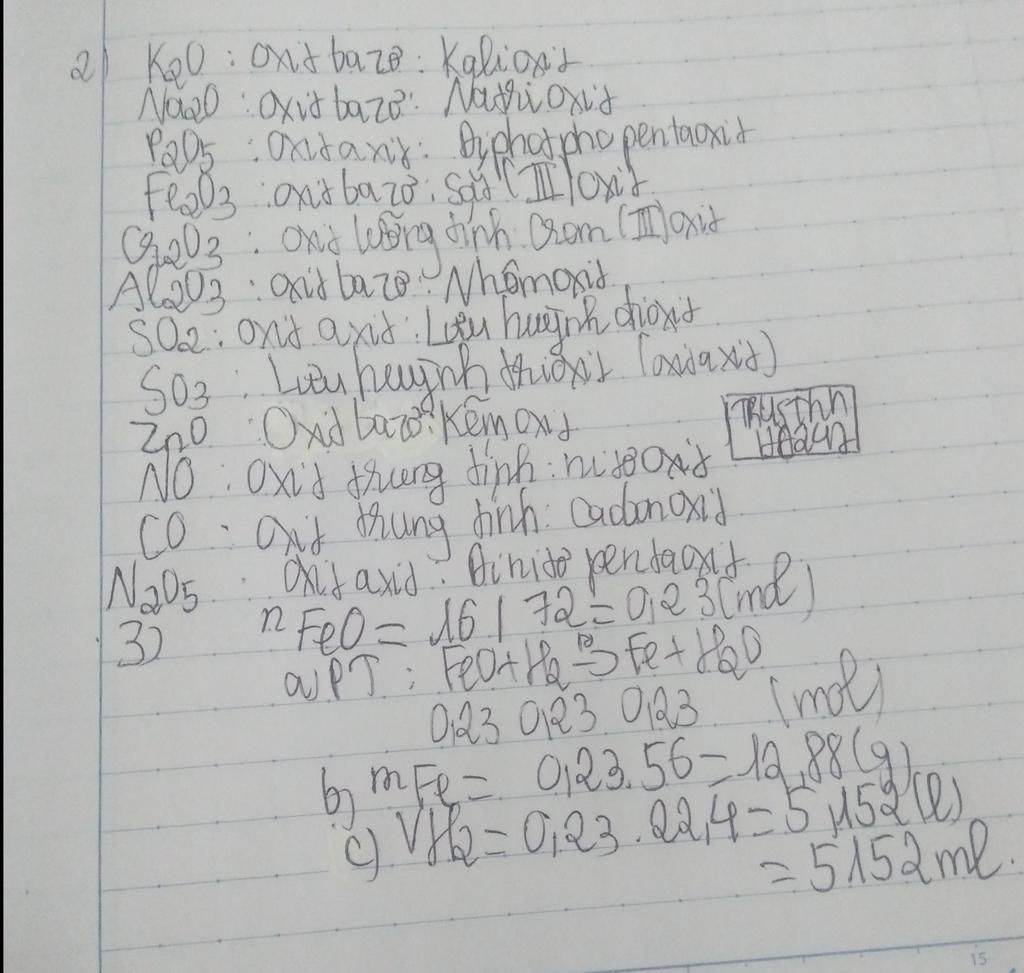 2) K2O : Oxit bazơ : Kali oxit
Na2O : oxit bazơ : Natri oxit
P2O5 : Oxit axit : Điphotpho pentaoxit
Fe2O3 : oxit bazơ : sắt (III) oxit
Cr2O3 : oxit lưỡng tính Crom (III) oxit
Al2O3 : oxit bazơ : Nhôm oxit
SO2 : oxit axit : Lưu huỳnh đioxit
SO3 : Lưu huỳnh trioxit (oxit axit)
ZnO : Oxit bazơ : Kẽm oxit
NO : oxit trung tính : nitơ oxit
CO : Oxit trung tính : cacbon oxit
N2O5 : Oxit axit : Đinitơ pentaoxit
3) nFeO = 16 / 72 = 0,23 (mol)
a) PT : FeO + H2 → Fe + H2O
0,23 0,23 0,23 (mol)
b) mFe = 0,23.56 = 12,88 (g)
c) VH2 = 0,23 . 22,4 = 5,152 (l)
= 5152 ml.
15